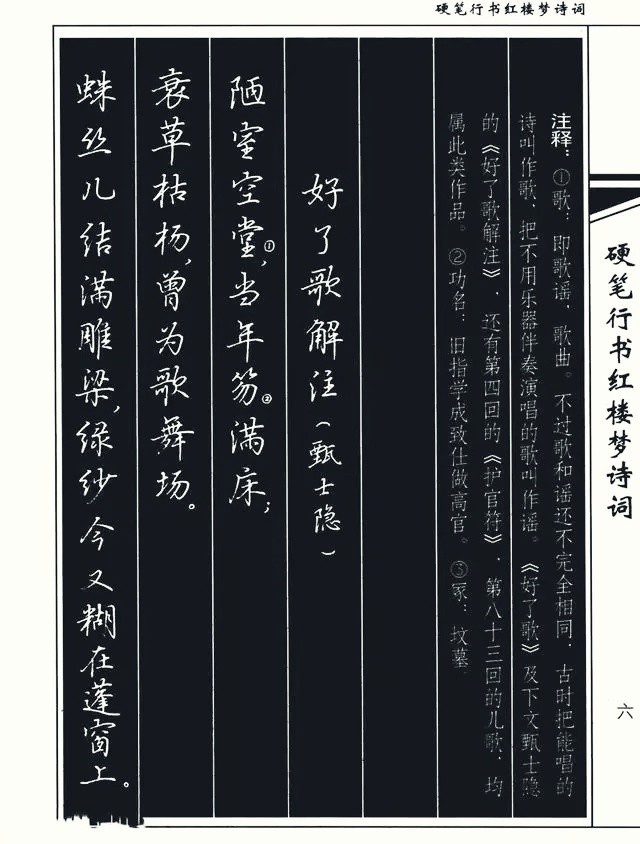 硬笔行书红楼梦诗词
硬笔行书红楼梦诗词
六
注释：①歌：即歌谣，歌曲。不过歌和谣还不完全相同，古时把能唱的
诗叫作歌，把不用乐器伴奏演唱的歌叫作谣。《好了歌》及下文甄士隐
的《好了歌解注》，还有第四回的《护官符》，第八十三回的儿歌，均
属此类作品。②功名：旧指学成致仕做高官。③冢：坟墓。
好了歌解注（甄士隐）
陋室空堂①，当年笏②满床；
衰草枯杨，曾为歌舞场。
蛛丝儿结满雕梁，绿纱今又糊在蓬窗上。